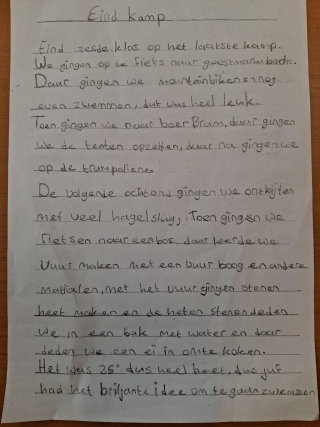 Eind kamp
Eind zesde klas op het laatste kamp.
We gingen op de fiets naar geestmerambacht.
Daar gingen we mountainbiken en nog
even zwemmen, dat was heel leuk.
Toen gingen we naar boer Bram, daar gingen
we de tenten opzetten, daar na gingen we
op de trampoliene.
De volgende ochtend gingen we ontbijten
met veel hagelslag, Toen gingen we
fietsen naar een bos. daar leerde we
vuur maken met een vuur boog en andere
matialen, met het vuur gingen stenen
heet maken en de heten stenen deden
we in een bak met water en daar
deden we een ei in om te koken.
Het was 35° dus heel heet, dus juf
had het briljante idee om te gaan zwemmen